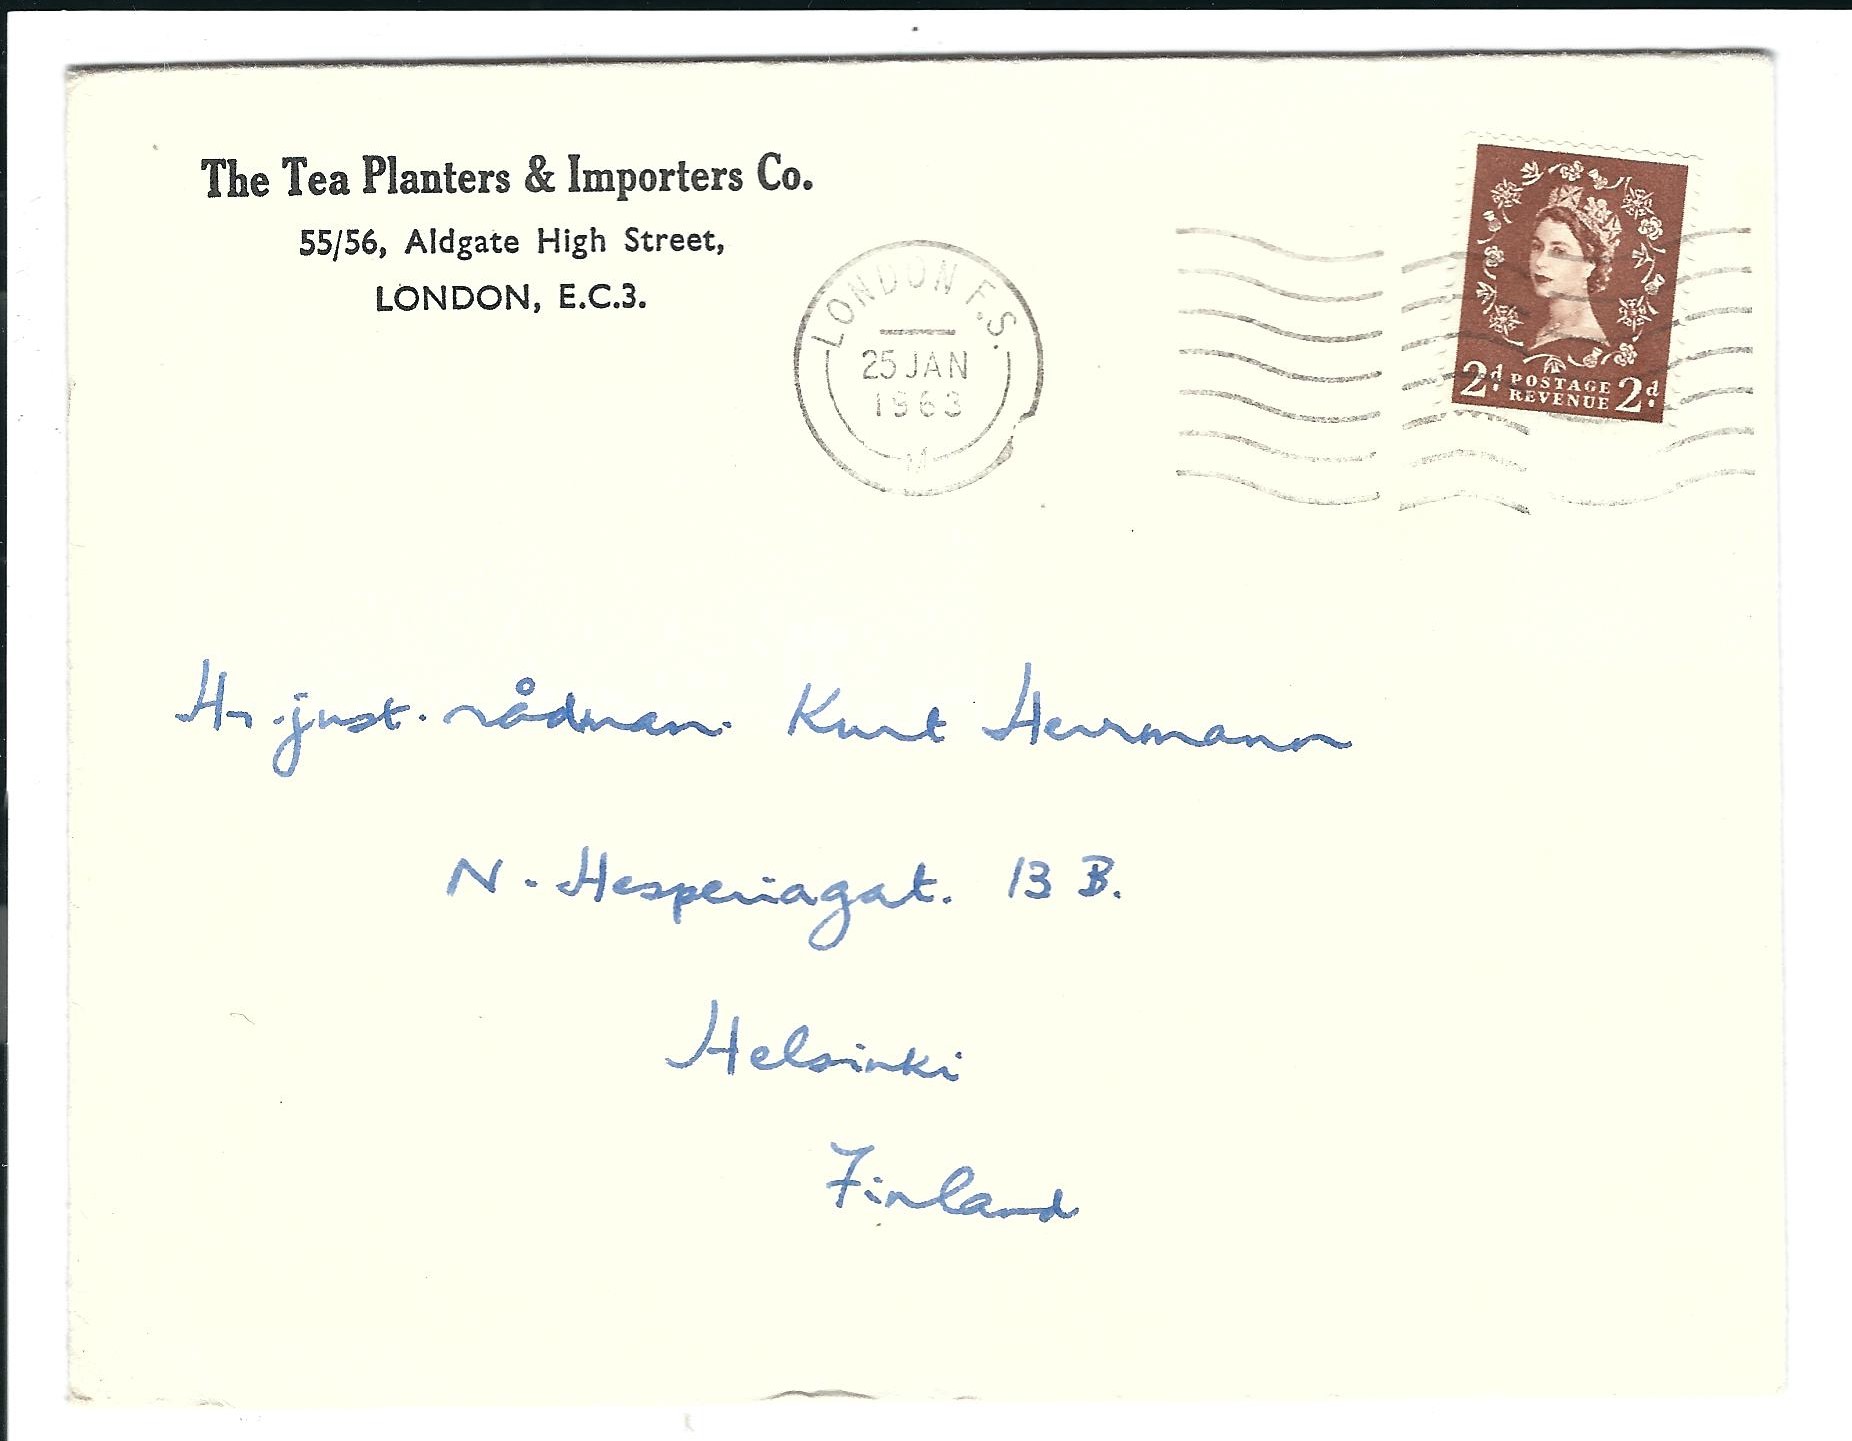 The Tea Planters & Importers Co.
55/56, Aldgate High Street,
LONDON, E.C.3.
LONDON F.S.
25 JAN
1963
M
2d. POSTAGE REVENUE 2d.
Hr. just. rådman. Kurt Herrmann
N. Hesperiagat. 13 B.
Helsinki
Finland